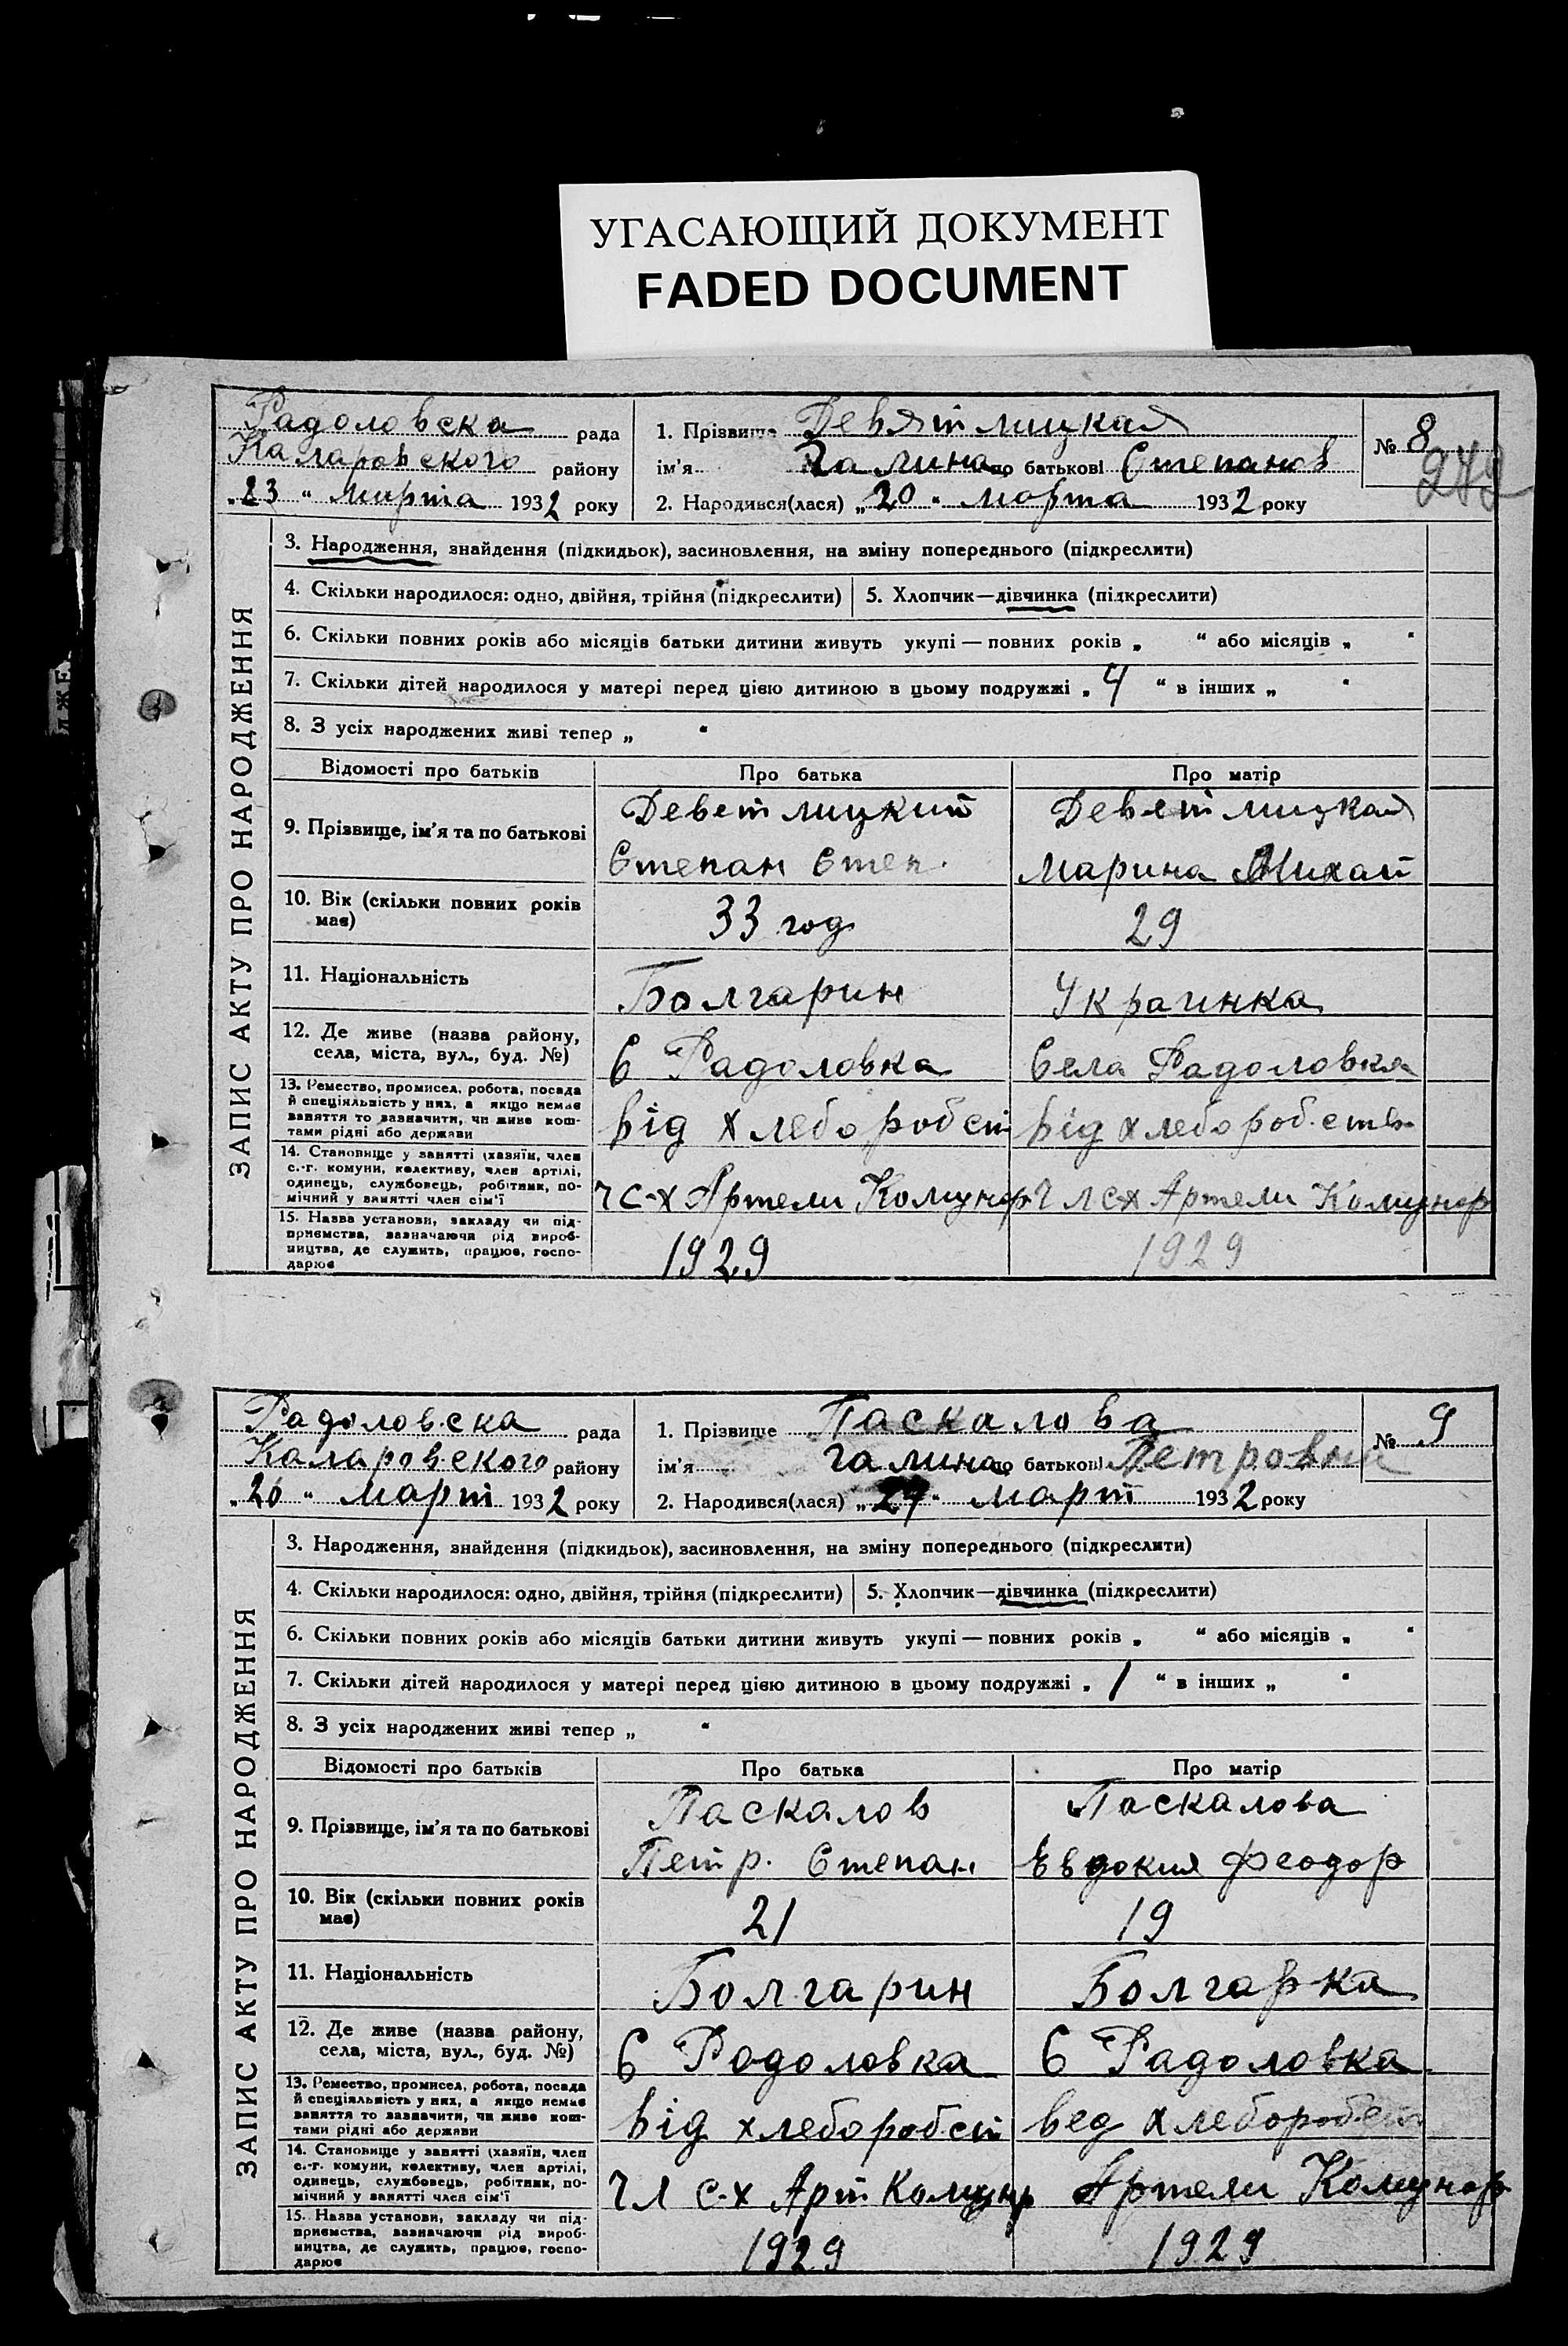 УГАСАЮЩИЙ ДОКУМЕНТ
FADED DOCUMENT
Радоловска рада
Каларовского району
„23 “ Марта 1932 року
1. Прізвище Девятлицкая
ім'я Галина по батькові Степанов
2. Народився(лася) „20“ марта 1932 року
№ 8
ЗАПИС АКТУ ПРО НАРОДЖЕННЯ
3. Народження, знайдення (підкидьок), засиновлення, на зміну попереднього (підкреслити)
4. Скільки народилося: одно, двійня, трійня (підкреслити) 5. Хлопчик—дівчинка (підкреслити)
6. Скільки повних років або місяців батьки дитини живуть укупі — повних років „ “ або місяців „ “
7. Скільки дітей народилося у матері перед цією дитиною в цьому подружжі „ 4 “ в інших „ “
8. З усіх народжених живі тепер „ “
Відомості про батьків Про батька Про матір
9. Прізвище, ім'я та по батькові
Деветлицкий
Степан Степ.
Деветлицкая
Марина Михай
10. Вік (скільки повних років має)
33 год
29
11. Національність
Болгарин
Украинка
12. Де живе (назва району, села, міста, вул., буд. №)
С Радоловка
Села Радоловка
13. Ремество, промисел, робота, посада й спеціяльність у них, а якщо немає заняття то зазначити, чи живе коштами рідні або держави
від хлеборобст
від хлебороб.ств
14. Становище у занятті (хазяїн, член с.-г. комуни, колективу, член артілі, одинець, службовець, робітник, помічний у занятті член сім'ї
ч с-х Артели Комунар
Чл сх Артели Комунар
15. Назва установи, закладу чи підприємства, зазначаючи рід виробництва, де служить, працює, господарює
1929
1929
Радоловска рада
Каларовского району
„26 “ март 1932 року
1. Прізвище Паскалова
ім'я Галина по батькові Петровна
2. Народився(лася) „ “ март 1932 року
№ 9
ЗАПИС АКТУ ПРО НАРОДЖЕННЯ
3. Народження, знайдення (підкидьок), засиновлення, на зміну попереднього (підкреслити)
4. Скільки народилося: одно, двійня, трійня (підкреслити) 5. Хлопчик—дівчинка (підкреслити)
6. Скільки повних років або місяців батьки дитини живуть укупі — повних років „ “ або місяців „ “
7. Скільки дітей народилося у матері перед цією дитиною в цьому подружжі „ 1 “ в інших „ “
8. З усіх народжених живі тепер „ “
Відомості про батьків Про батька Про матір
9. Прізвище, ім'я та по батькові
Паскалов
Петр. Степан
Паскалова
Евдокия Феодор
10. Вік (скільки повних років має)
21
19
11. Національність
Болгарин
Болгарка
12. Де живе (назва району, села, міста, вул., буд. №)
С Родоловка
С Радоловка
13. Ремество, промисел, робота, посада й спеціяльність у них, а якщо немає заняття то зазначити, чи живе коштами рідні або держави
від хлеборобст
вед хлеборобст
14. Становище у занятті (хазяїн, член с.-г. комуни, колективу, член артілі, одинець, службовець, робітник, помічний у занятті член сім'ї
Чл с-х Арт Комунар
Артели Комунар
15. Назва установи, закладу чи підприємства, зазначаючи рід виробництва, де служить, працює, господарює
1929
1929